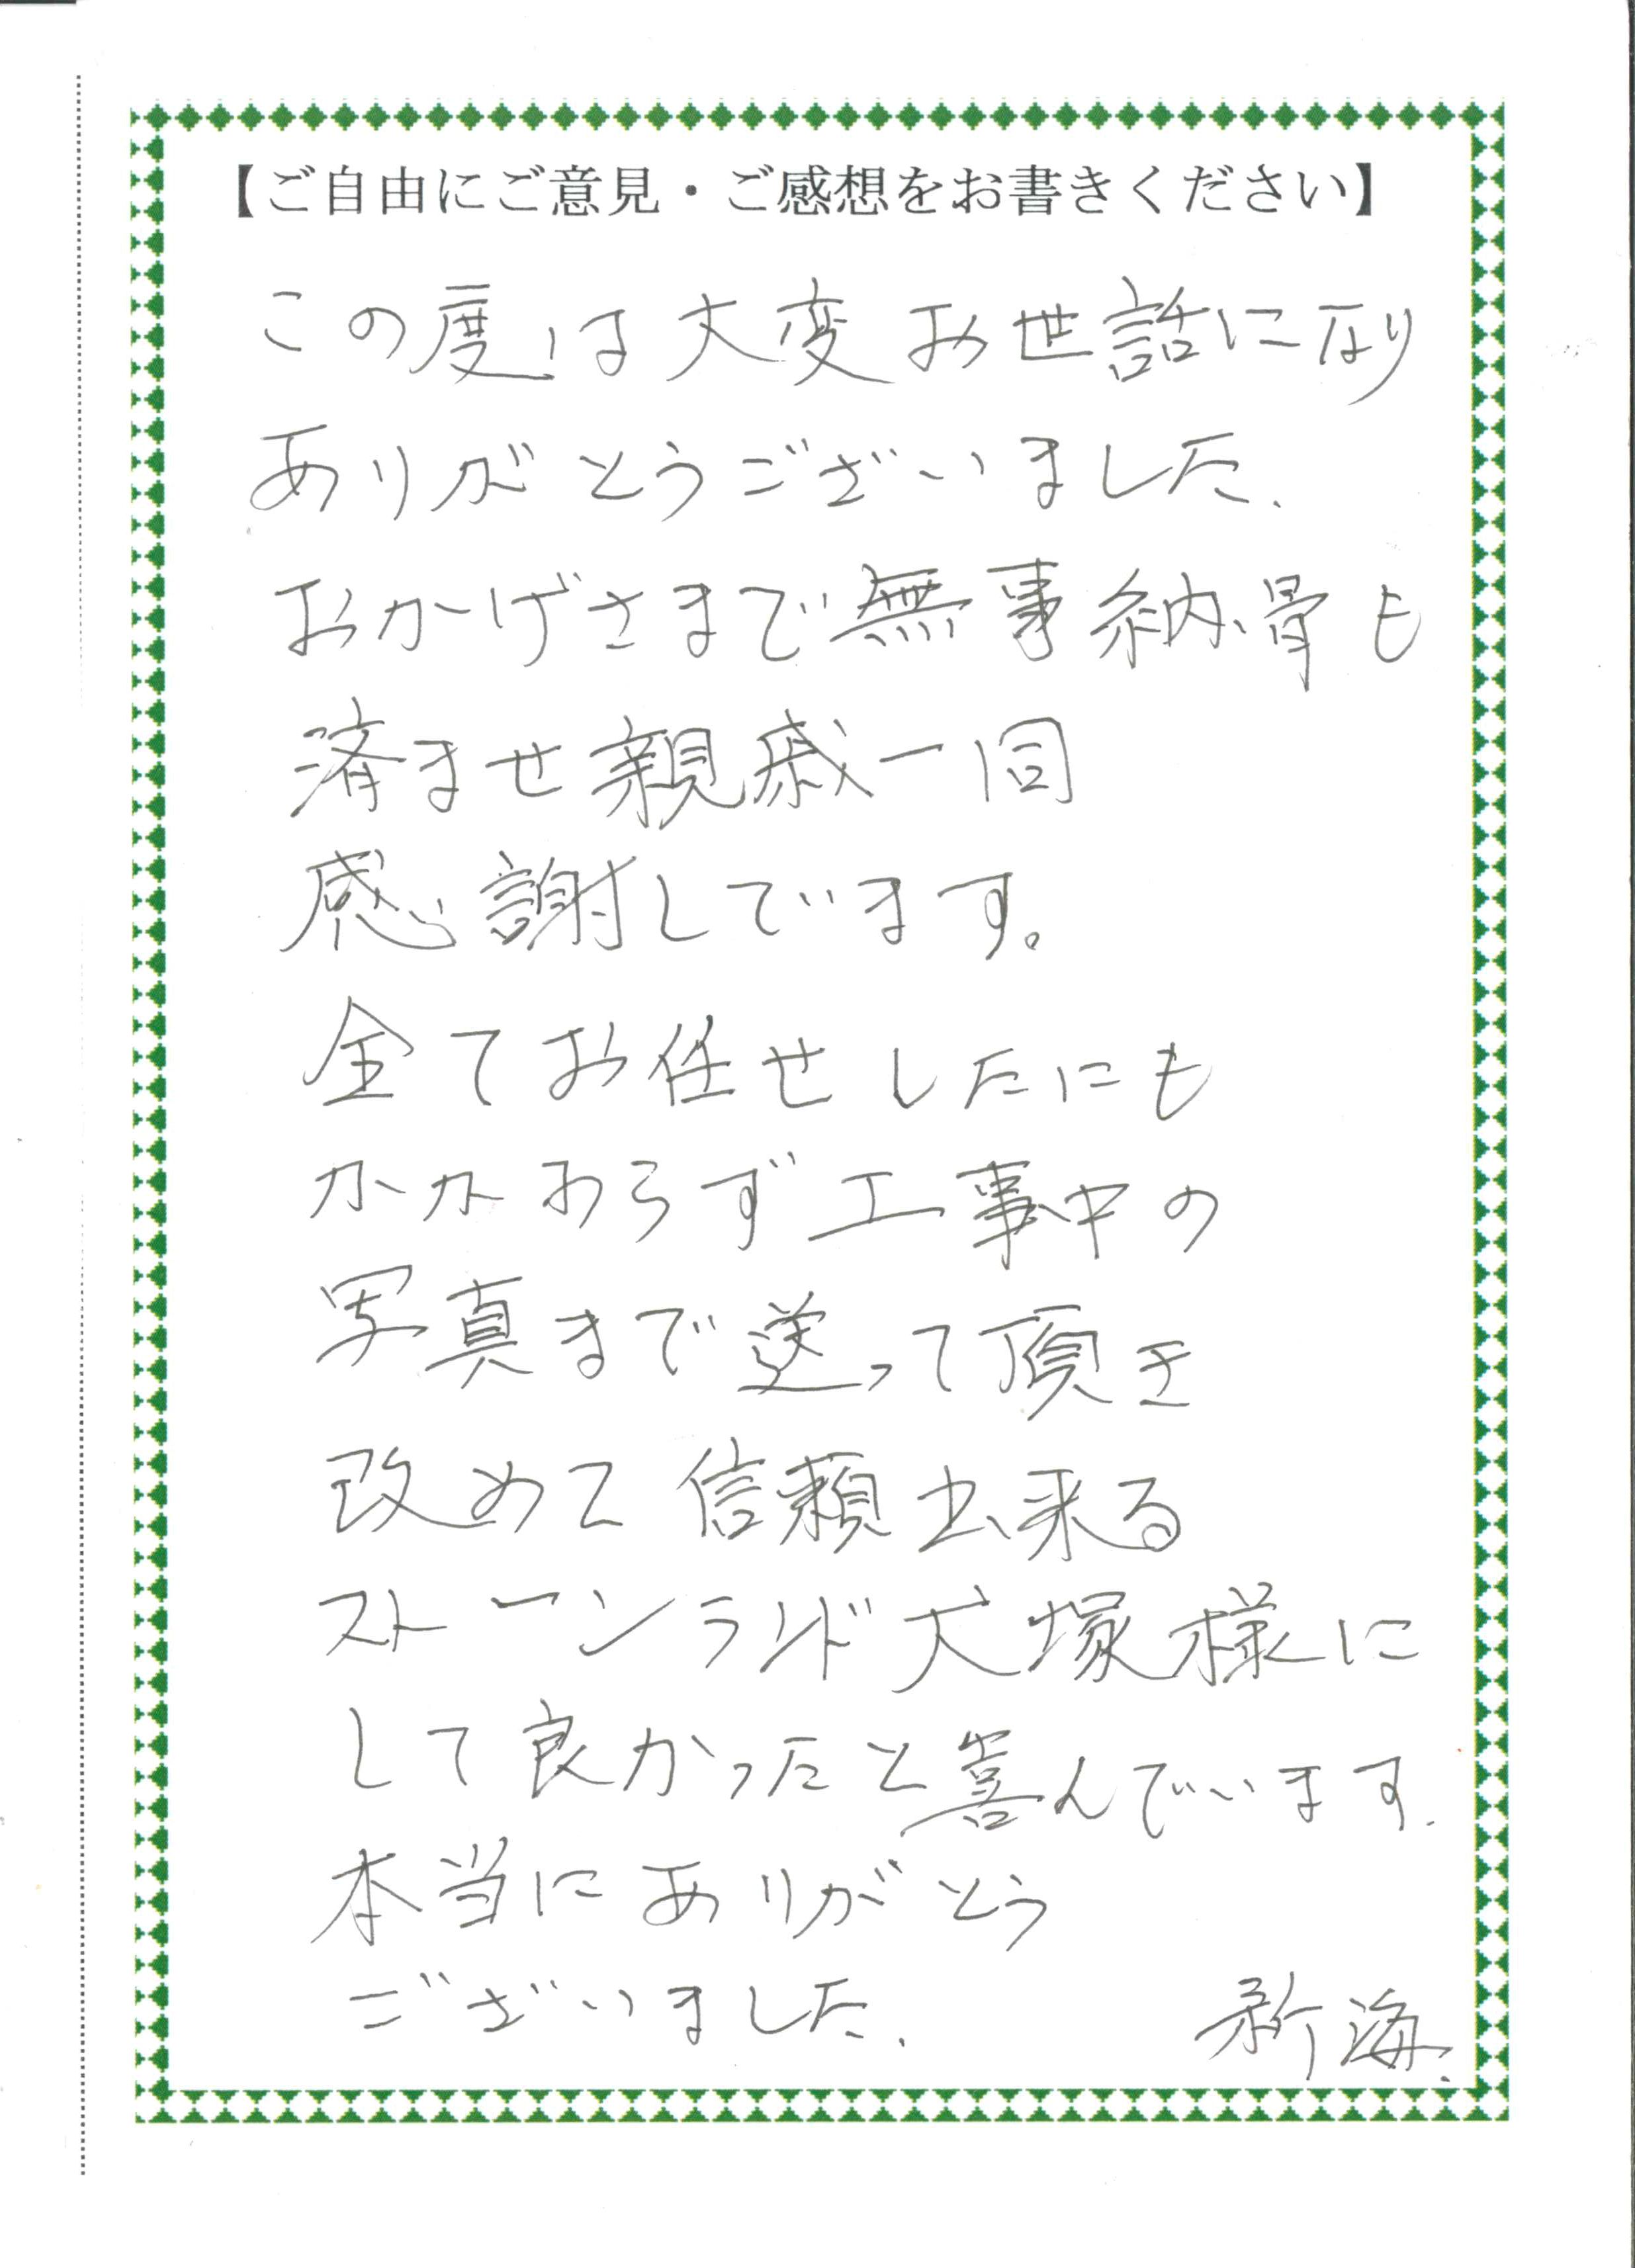 【ご自由にご意見・ご感想をお書きください】
この度は大変お世話になり
ありがとうございました.
おかげさまで無事納骨も
済ませ親戚一同
感謝しています。
全てお任せしたにも
かかわらず工事中の
写真まで送って頂き
改めて信頼出来る
ストーンランド犬塚様に
して良かったと喜んでいます.
本当にありがとう
ございました.
新海.